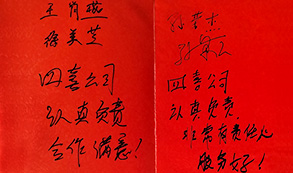 徐美芝
四喜公司
认真负责
合作满意！
四喜公司
认真负责
非常有责任心
服务好！